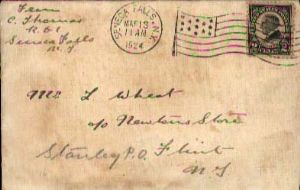 From
C. Thomas
R.D.1
Seneca Falls
N.Y.
SENECA FALLS, N.Y.
MAR 13
11 AM
1924
2
Mr. L Wheat
c/o Newtons Store
Stanley P.O. Flint
N.Y.